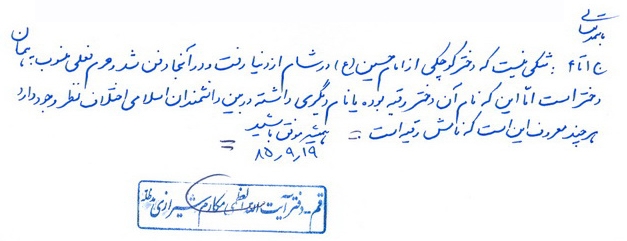 باسمه تعالی
ج ۱ تا ۴ : شکی نیست که دختر کوچکی از امام حسین (ع) در شام از دنیا رفت و در آنجا دفن شد و حرم فعلی منسوب به همان
دختر است امّا این که نام آن دختر رقیه بوده یا نام دیگری داشته در بین دانشمندان اسلامی اختلاف نظر وجود دارد
هر چند معروف این است که نامش رقیه است
همیشه موفق باشید
۸۵٫۹٫۱۹
قم - دفتر آیت الله العظمی مکارم شیرازی مدظله